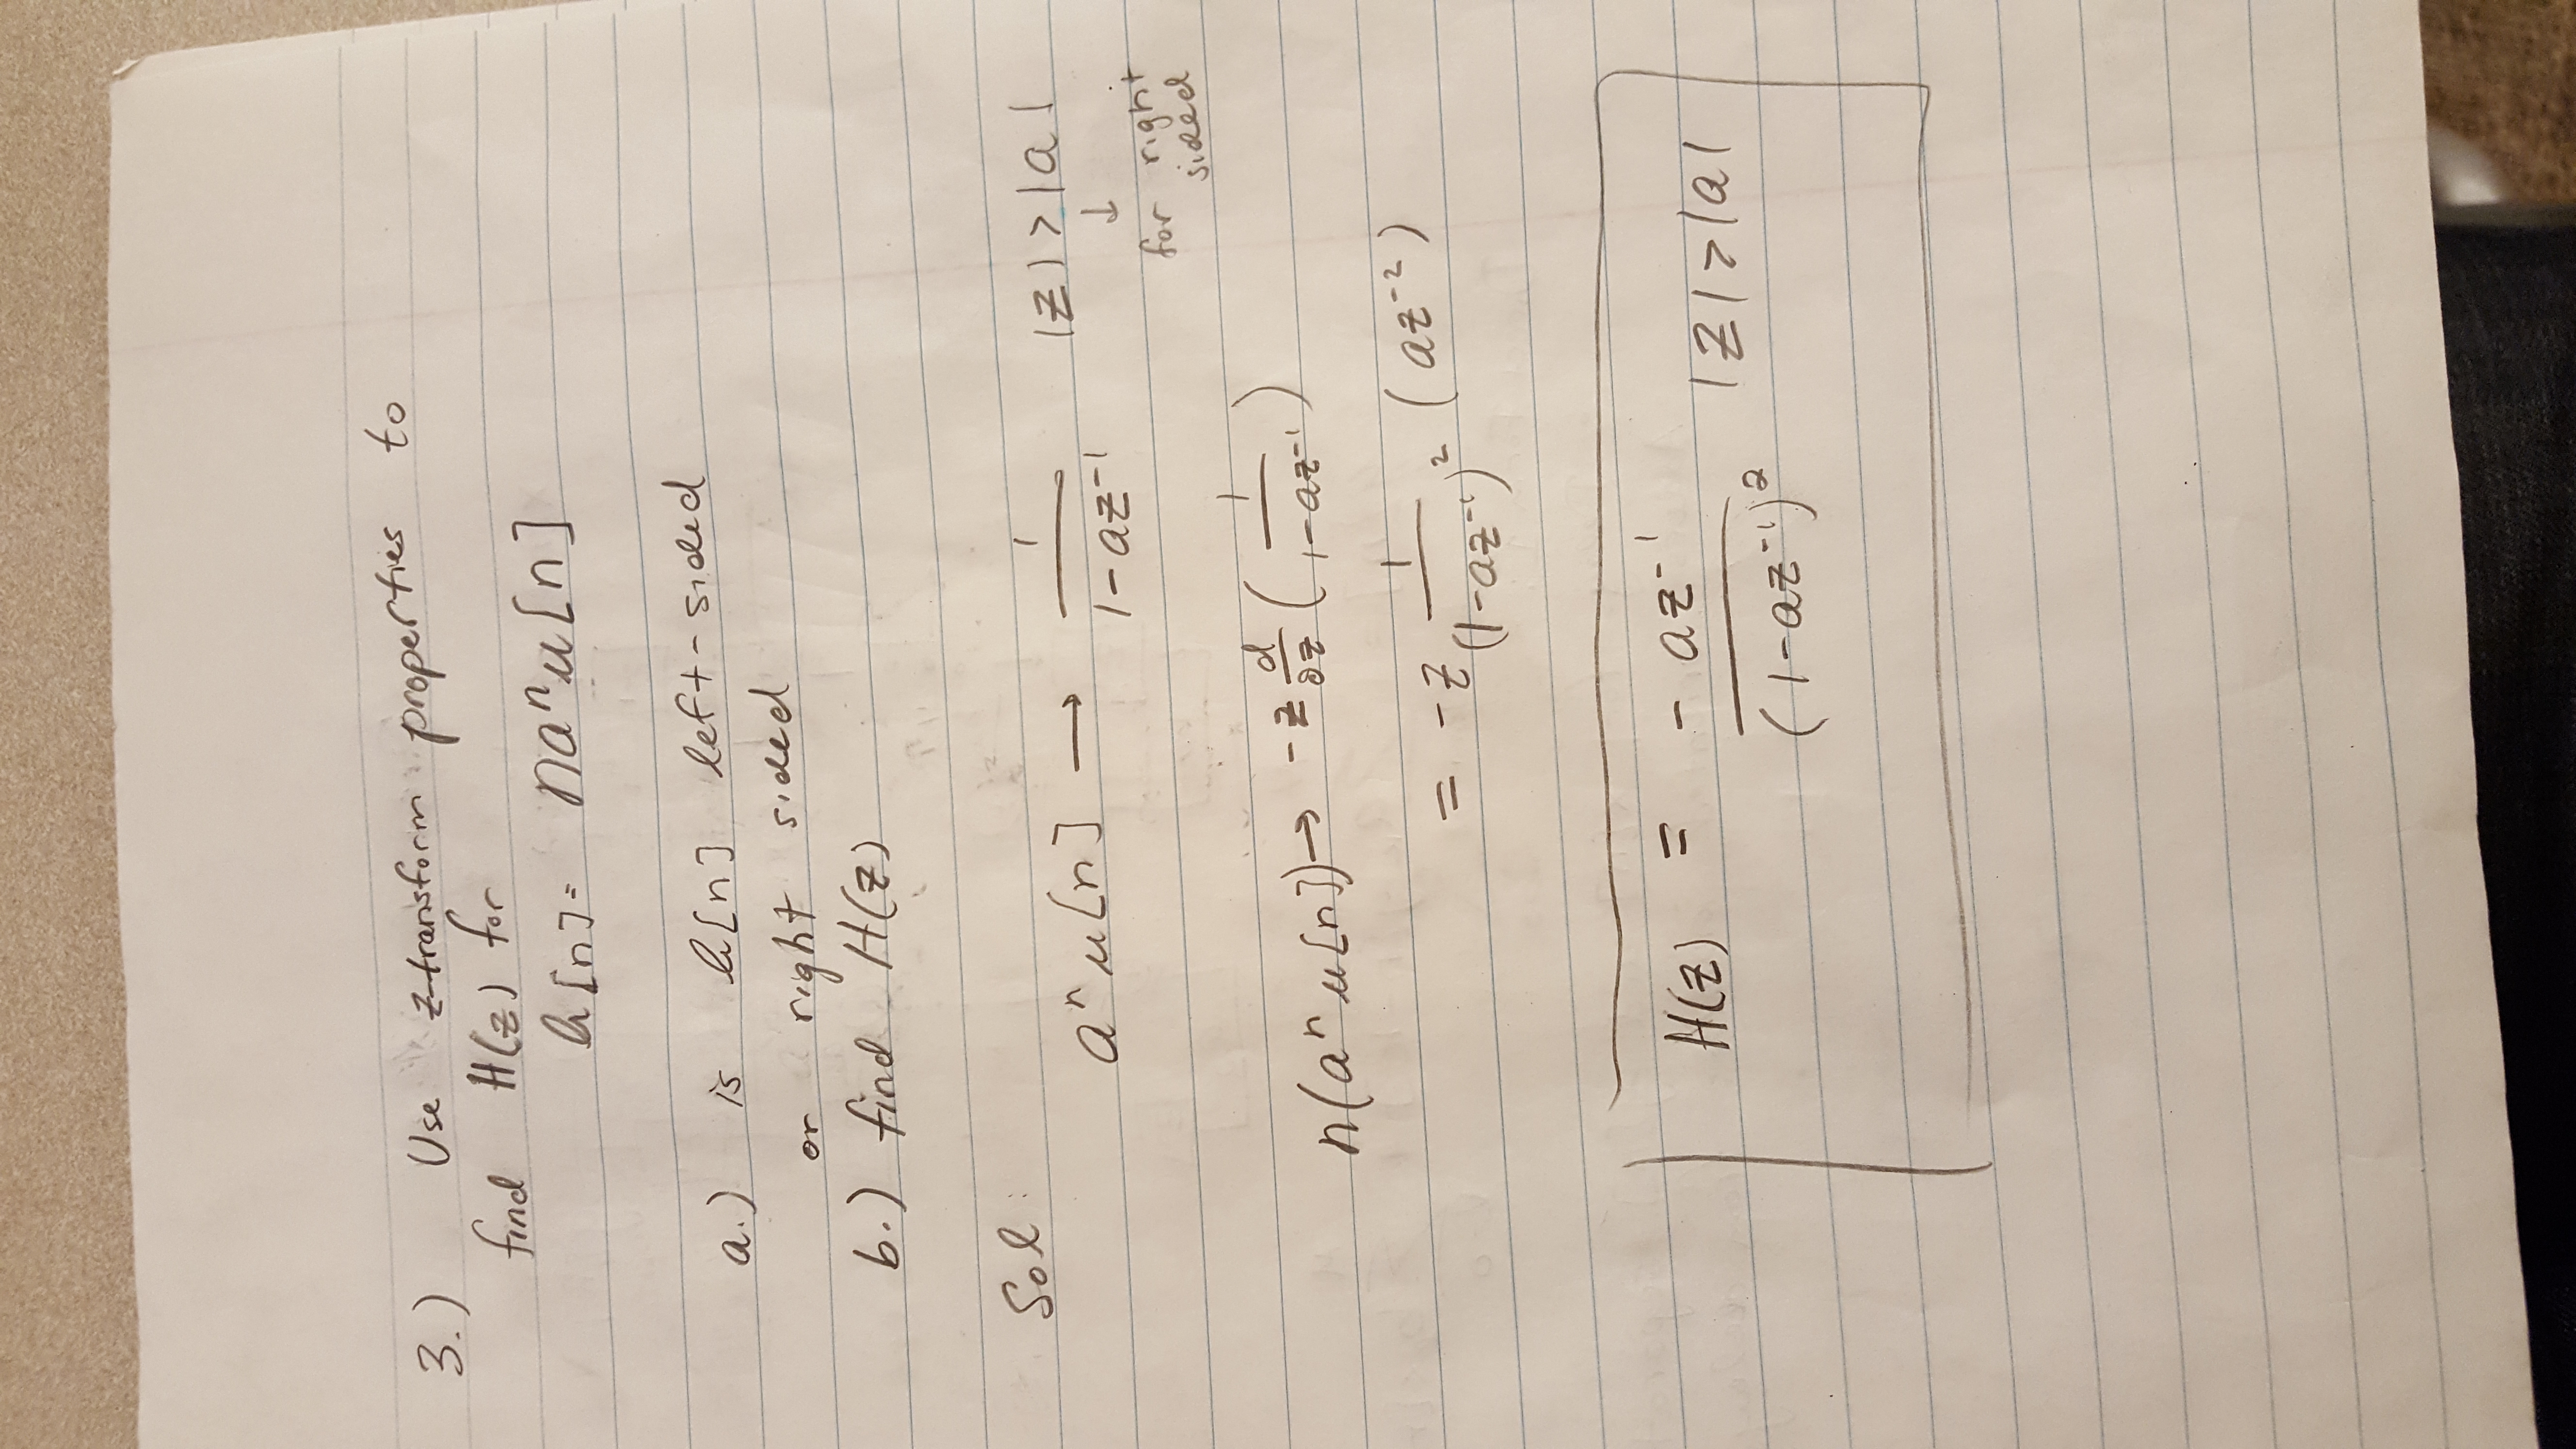 3.) Use z-transform properties to
find H(z) for
h[n]= naⁿu[n]
a.) is h[n] left-sided
or right sided
b.) find H(z)
Sol:
aⁿu[n] → 1/(1-az⁻¹) |z|>|a|
↓
for right
sided
n(aⁿu[n])→ -z d/dz (1/(1-az⁻¹))
= -z 1/(1-az⁻¹)² (az⁻²)
H(z) = -az⁻¹/(1-az⁻¹)² |z|>|a|